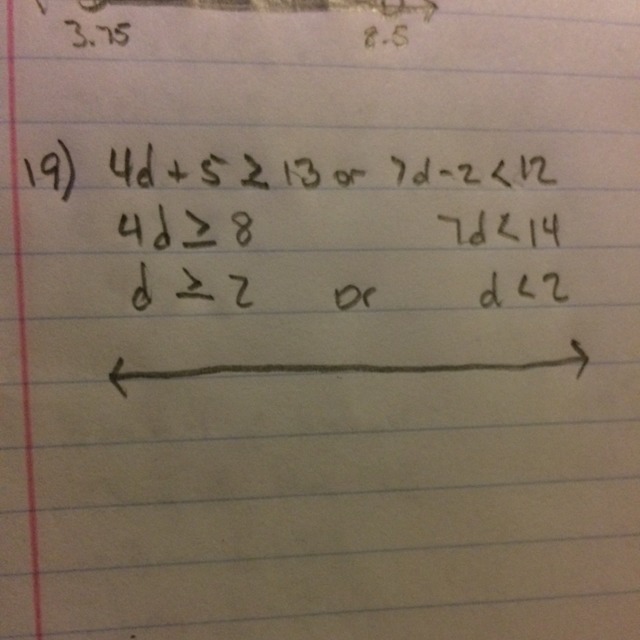 3.75 8.5
19) 4d + 5 ≥ 13 or 7d - 2 < 12
4d ≥ 8 7d < 14
d ≥ 2 or d < 2